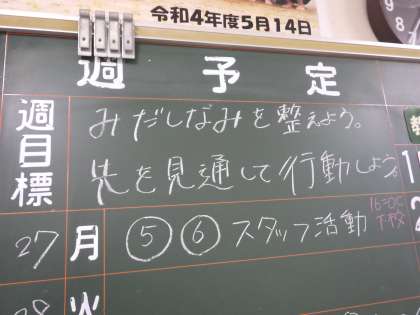 令和4年度5月14日
週予定
週目標
みだしなみを整えよう。
先を見通して行動しよう。
27 月 ⑤ ⑥ スタッフ活動 16:00 下校
28 火